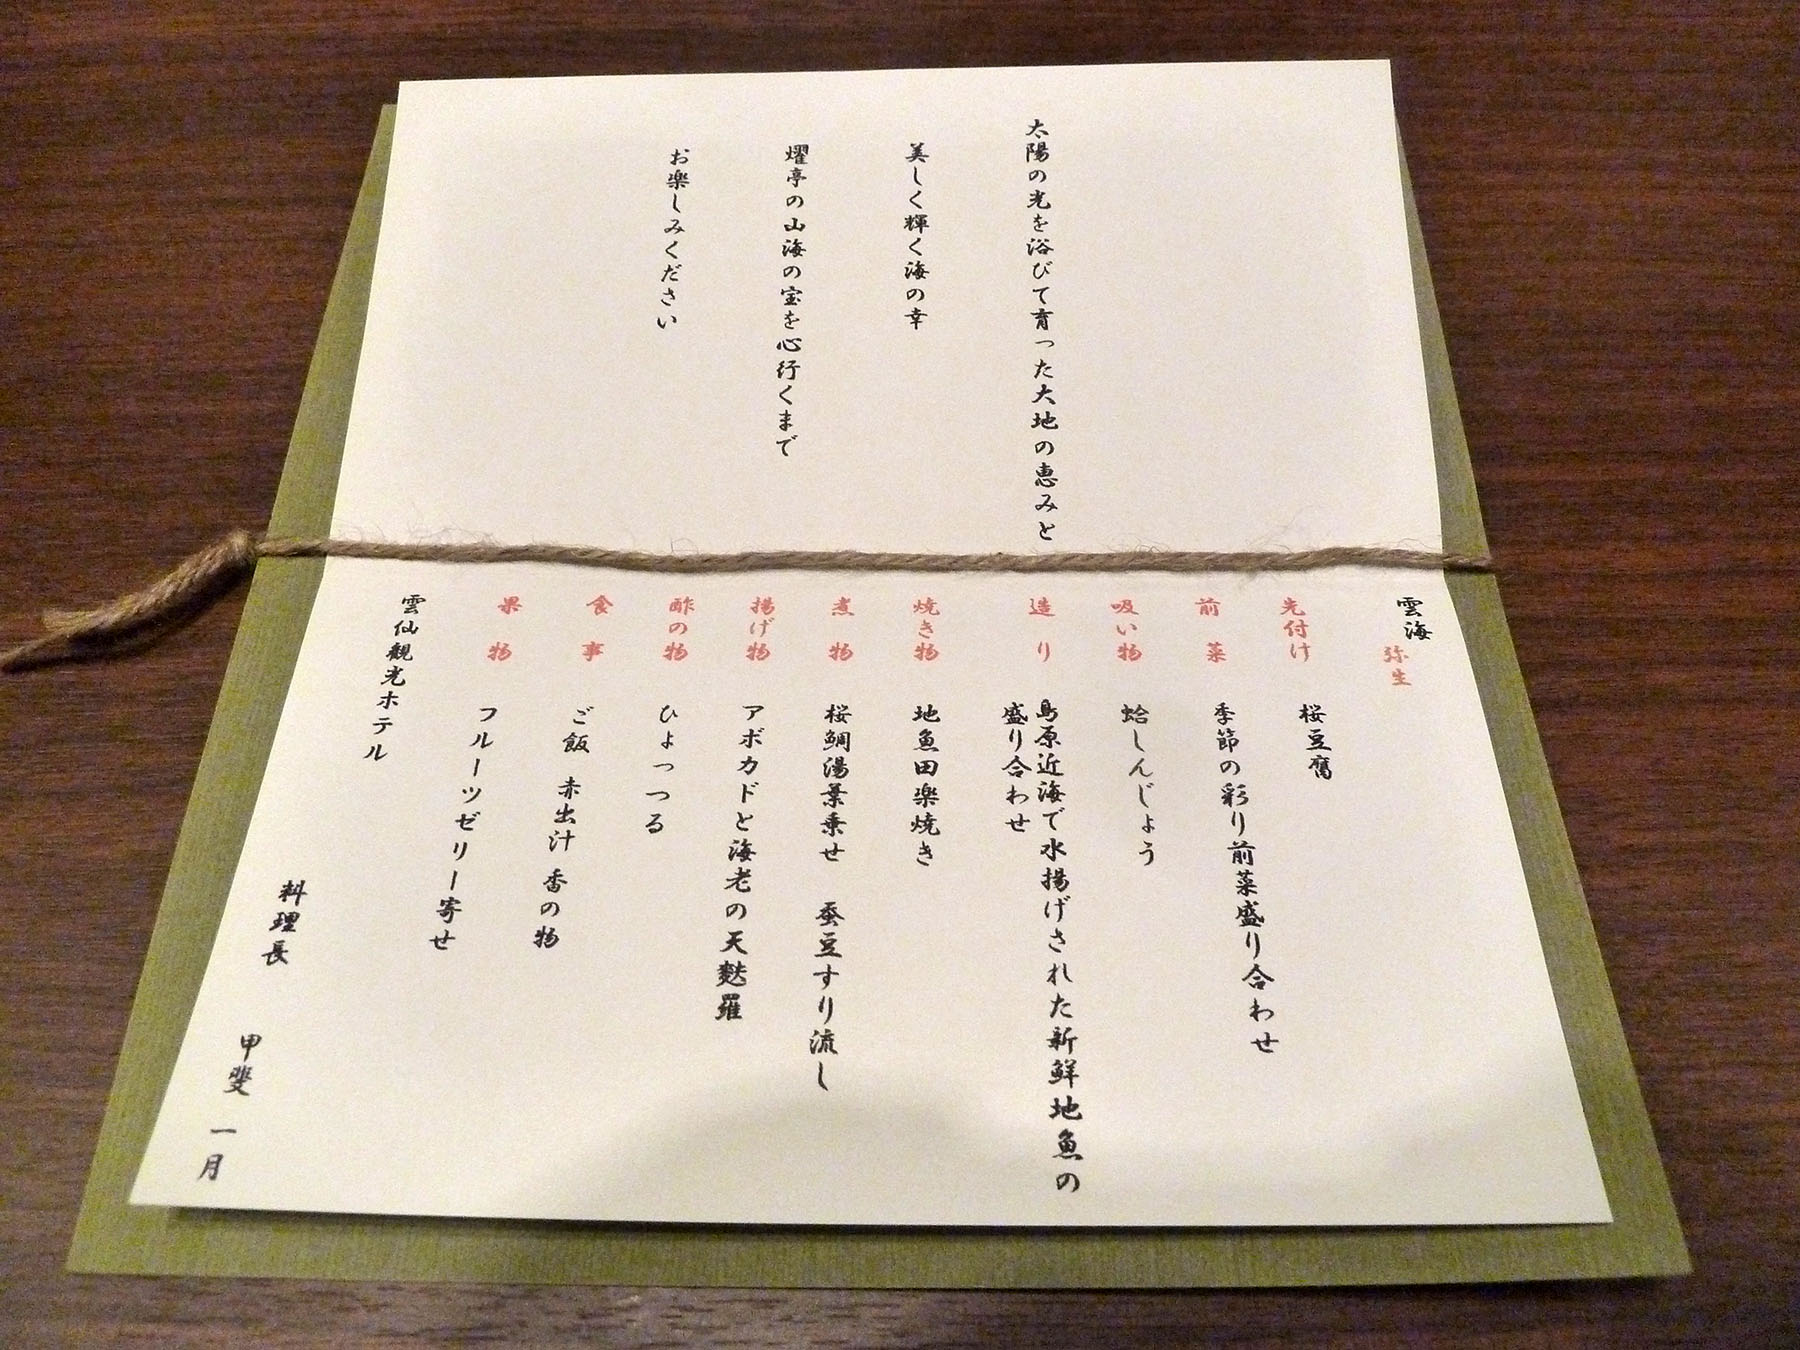 太陽の光を浴びて育った大地の恵みと
美しく輝く海の幸
燿亭の山海の宝を心行くまで
お楽しみください
雲海
弥生
先付け 桜豆腐
前菜 季節の彩り前菜盛り合わせ
吸い物 蛤しんじょう
造り 島原近海で水揚げされた新鮮地魚の
盛り合わせ
焼き物 地魚田楽焼き
煮物 桜鯛湯葉乗せ 蚕豆すり流し
揚げ物 アボカドと海老の天麩羅
酢の物 ひょっつる
食事 ご飯 赤出汁 香の物
果物 フルーツゼリー寄せ
雲仙観光ホテル
料理長 甲斐 一月